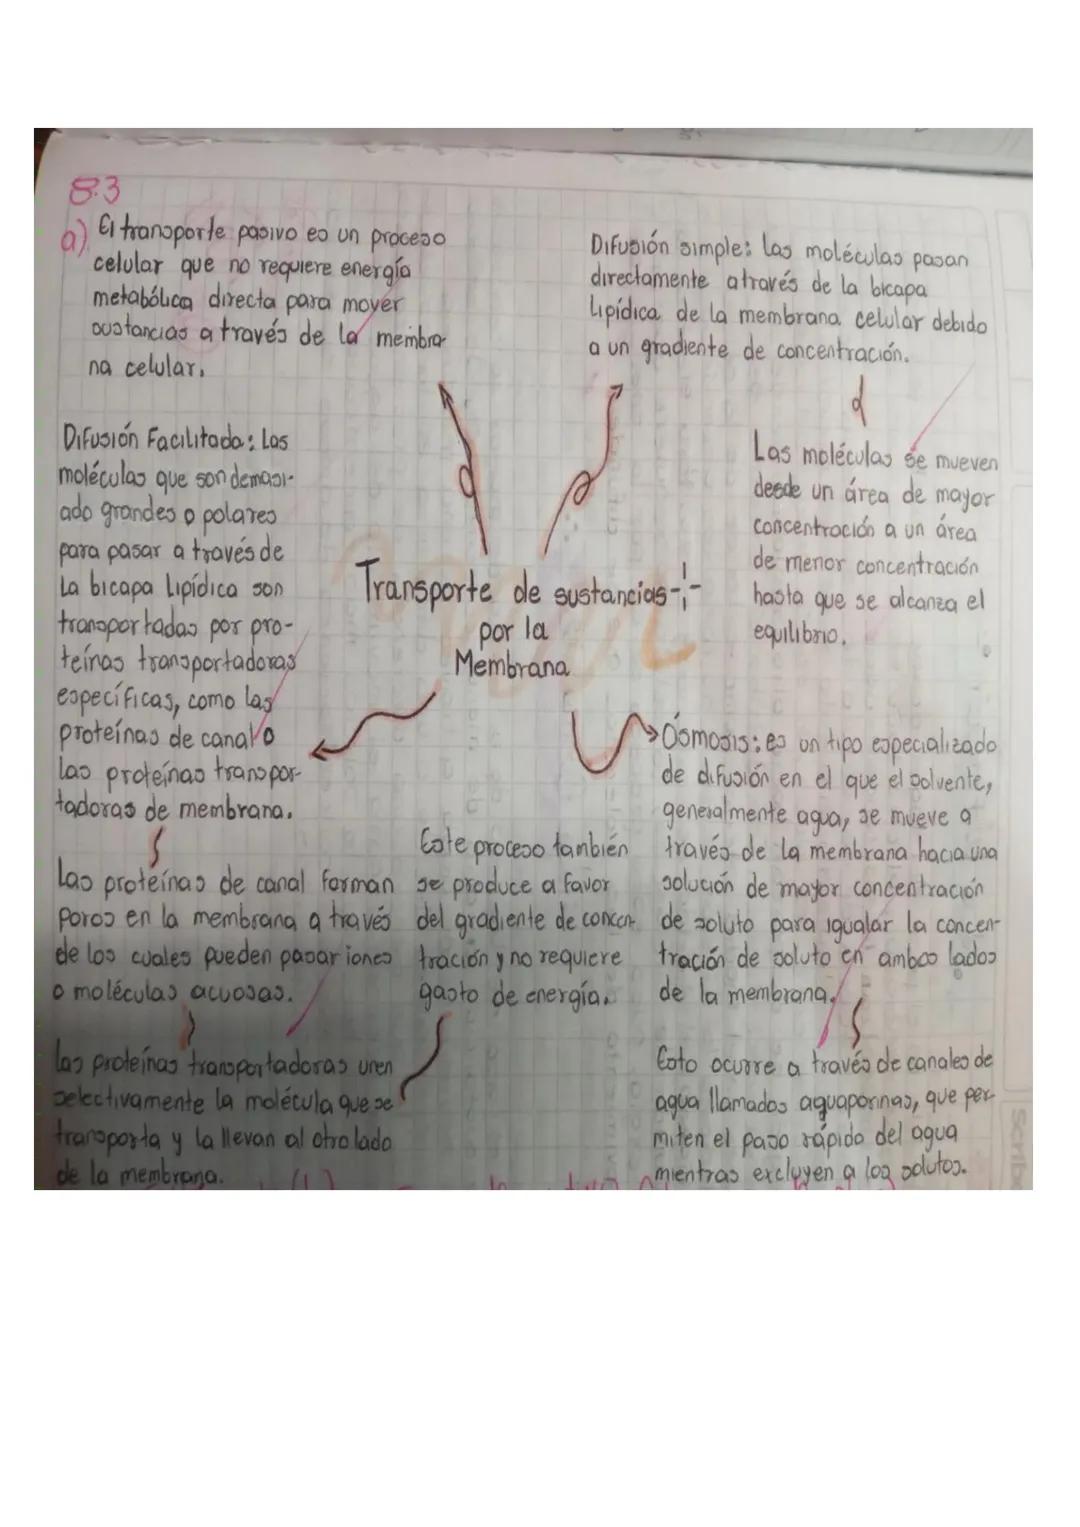 8.3
a) El transporte pasivo es un proceso
celular que no requiere energía
metabólica directa para mover
sustancias a través de la membra-
na celular.
Difusión simple: Las moléculas pasan
directamente através de la bicapa
Lipídica de la membrana celular debido
a un gradiente de concentración.
Las moléculas se mueven
desde un área de mayor
concentración a un área
de menor concentración
hasta que se alcanza el
equilibrio.
Difusión Facilitada: Las
moléculas que son demasi-
ado grandes o polares
para pasar a través de
La bicapa Lipídica son
transportadas por pro-
teínas transportadoras
específicas, como las
proteínas de canal o
las proteínas transpor-
tadoras de membrana.
Transporte de sustancias
por la
Membrana
Ósmosis: es un tipo especializado
de difusión en el que el solvente,
generalmente agua, se mueve a
través de la membrana hacia una
solución de mayor concentración
de soluto para igualar la concen-
tración de soluto en ambos lados
de la membrana.
Las proteínas de canal forman
poros en la membrana a través
de los cuales pueden pasar iones
o moléculas acuosas.
Este proceso también
se produce a favor
del gradiente de concen-
tración y no requiere
gasto de energía.
Las proteínas transportadoras unen
selectivamente la molécula que se
transporta y la llevan al otro lado
de la membrana.
Esto ocurre a través de canales de
agua llamados aquaporinas, que per-
miten el paso rápido del agua
mientras excluyen a los solutos.
Scribe